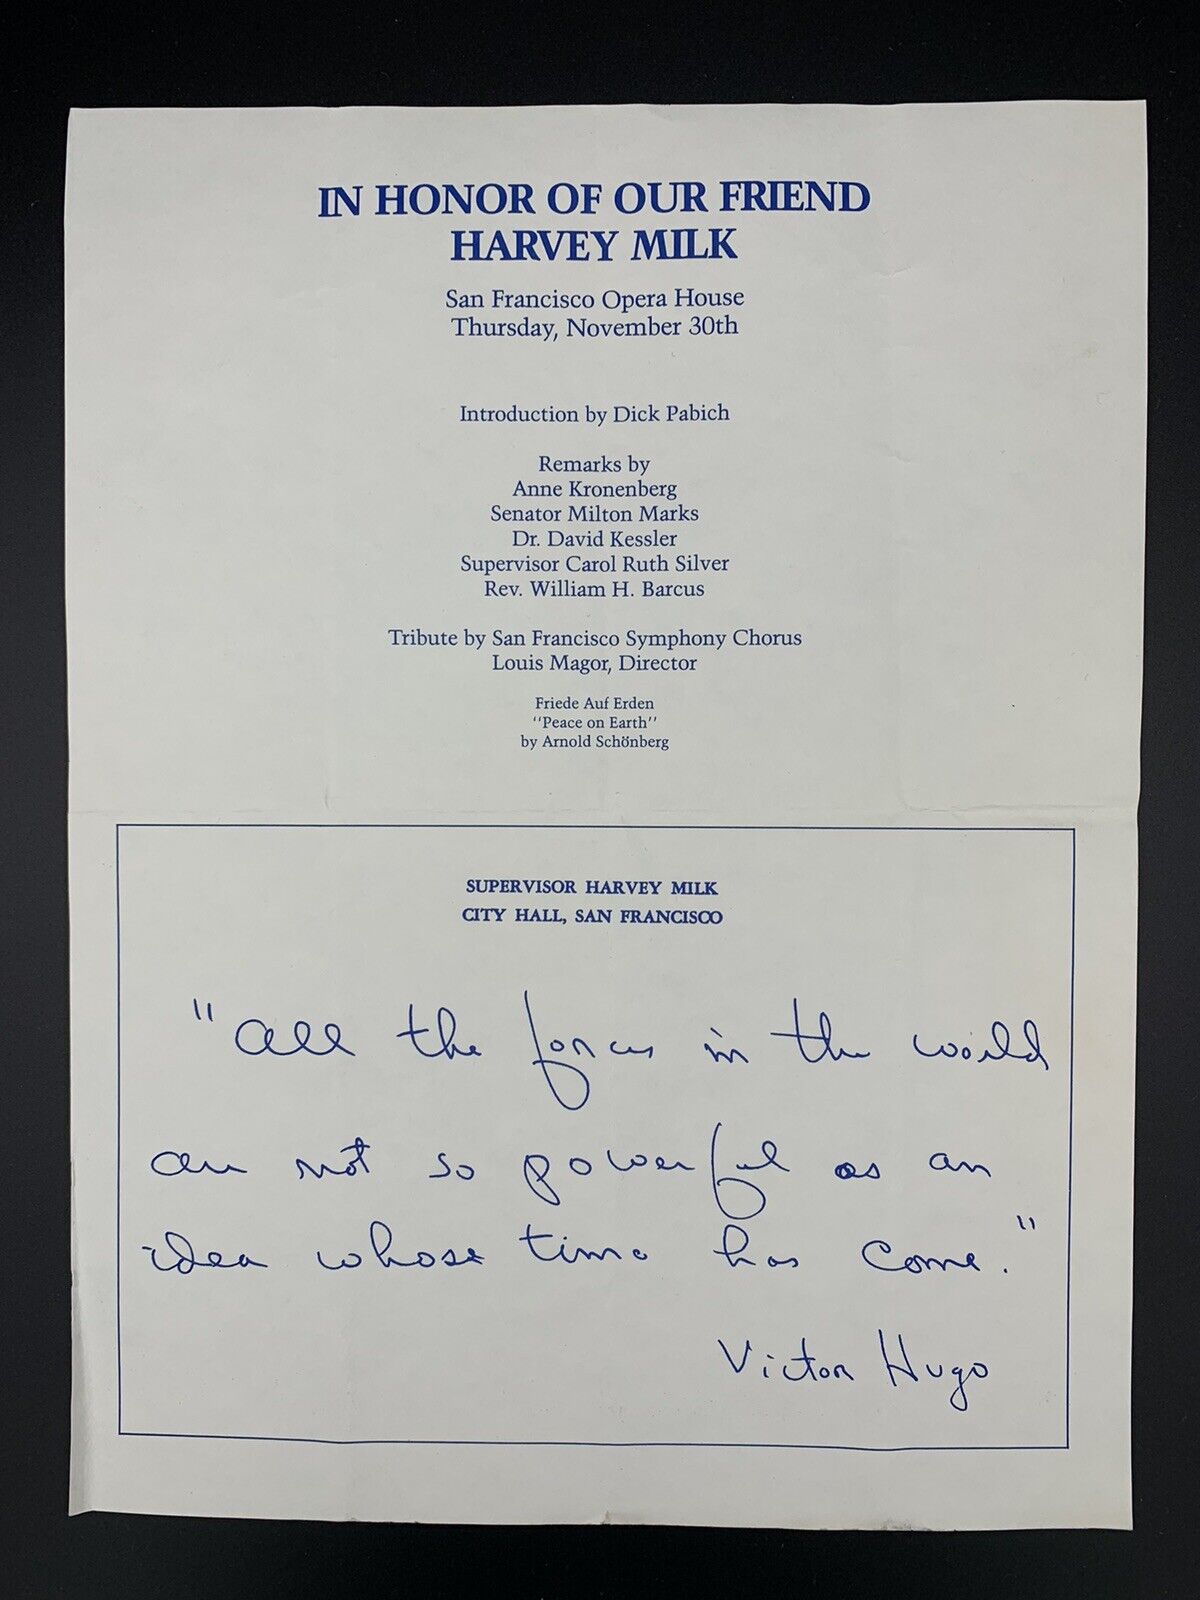 IN HONOR OF OUR FRIEND
HARVEY MILK
San Francisco Opera House
Thursday, November 30th
Introduction by Dick Pabich
Remarks by
Anne Kronenberg
Senator Milton Marks
Dr. David Kessler
Supervisor Carol Ruth Silver
Rev. William H. Barcus
Tribute by San Francisco Symphony Chorus
Louis Magor, Director
Friede Auf Erden
"Peace on Earth"
by Arnold Schönberg
SUPERVISOR HARVEY MILK
CITY HALL, SAN FRANCISCO
"All the forces in the world
are not so powerful as an
idea whose time has come."
Victor Hugo